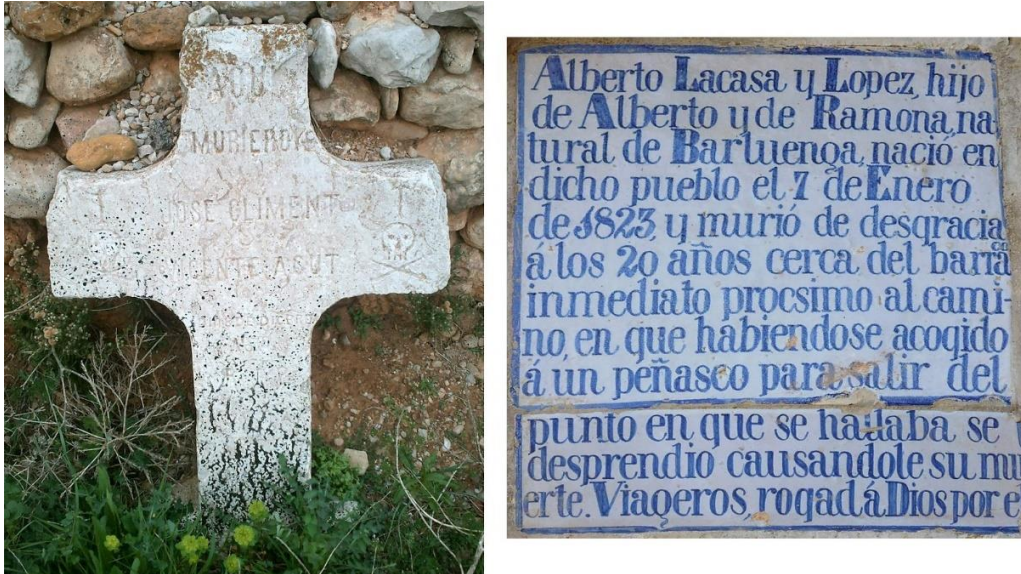 AQUI
MURIERON
JOSE CLIMENT
Alberto Lacasa y Lopez, hijo
de Alberto y de Ramona, na
tural de Barluenga, nació en
dicho pueblo el 7 de Enero
de 1823, y murió de desgracia
á los 20 años cerca del barrãco
inmediato procsimo al cami-
no, en que habiendose acogido
á un peñasco para salir del
punto en que se hallaba se
desprendio causandole su mu
erte. Viageros, rogad á Dios por e